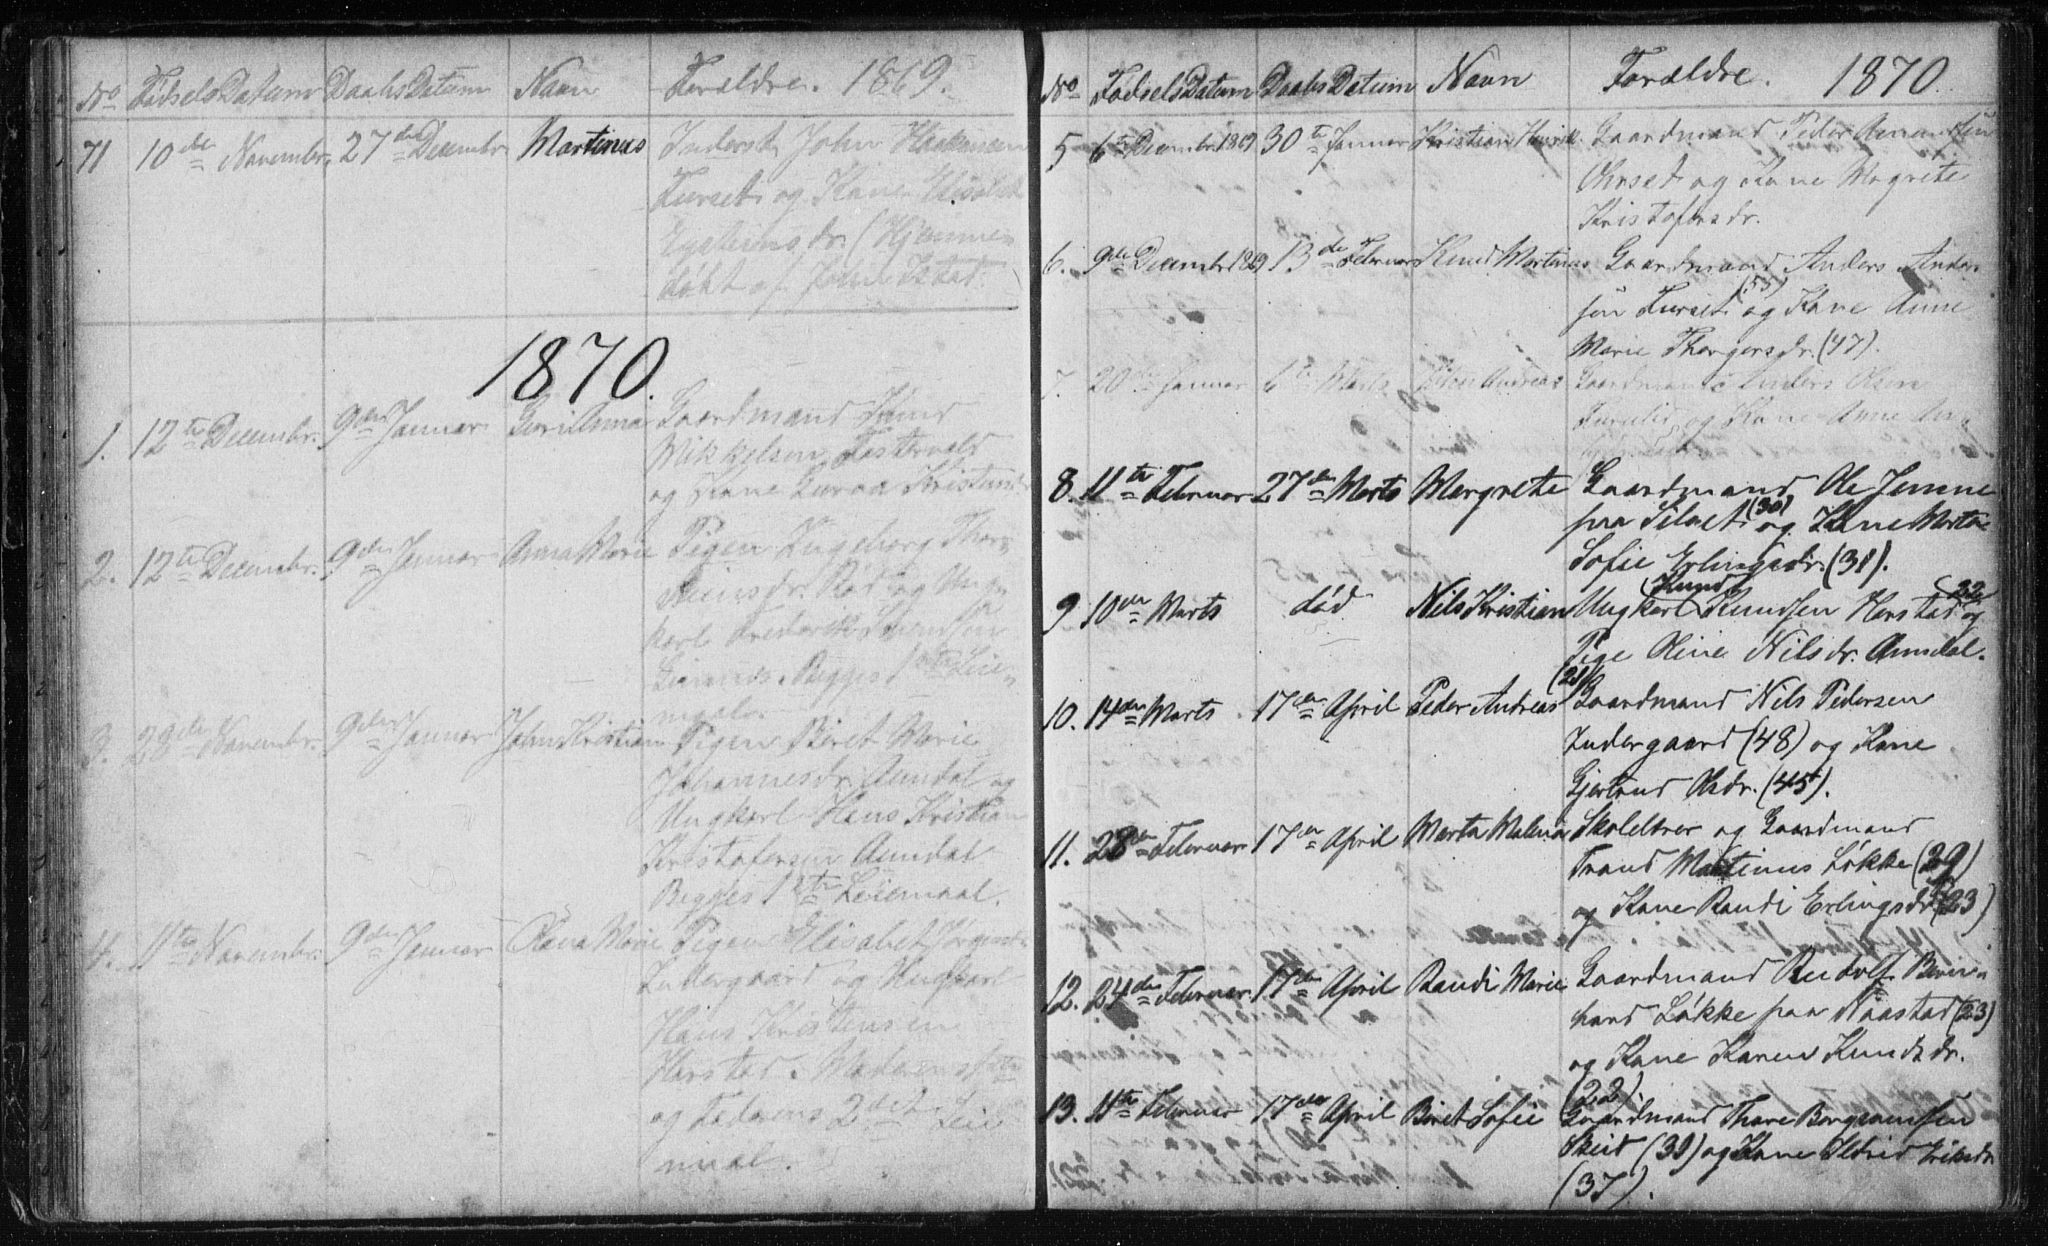 No Fødsels Datum Daabs Datum Navn Forældre. 1869.
71 10de November 27de Decembr. Martinus Inderst John Haakensen
Furset og Kone Elisabet
Eysteinsdr. (Hjemme-
døbt af
1870.
1. 12te Decembr. 9de Januar Guri Anna Gaardmand Knud
Mikkelsen
og Kone Guroa Kristensdr.
2. 12te Decembr. 9de Januar Anna Marie Pigen Ingeborg Thor-
steinsdr. Rød og Ung-
karl Frederik Svendsen
Begges 1ste Leie-
maal.
3. 23de Novembr. 9de Januar John Kristian Pigen Beret Marie
Johannesdr. Aandal og
Ungkarl Hans Kristian
Kristofersen Aandal
Begges 1ste Leiemaal.
4. 11te Novembr. 9de Januar Olava Marie Pigen Elisabet Jørgensdr.
Indergaard og Ungkarl
Hans Kristensen
Harstad. Moderens 1ste
og Faderens 2det Leie-
maal.
No Fødsels Datum Daabs Datum Navn Forældre. 1870.
5 6te Decembr 1869 30te Januar Kristian Henrik Gaardmand Peder Amundsen
Ohrset og Kone Magrete
Kristofersdr.
6. 9de Decembr 1869 13de Februar Knud Martinus Gaardmand Anders Ander-
sen Furset (55) og Kone Anne
Marie Thorgersdr. (47).
7. 20de Januar 6te Marts Andreas Gaardmand Anders Olsen
og Kone Anne
8. 11te Februar 27de Marts Margrete Gaardmand Ole Jenne
paa Silset (30) og Kone Marta
Sofie Erlingsdr. (31).
9 10de Marts død Nils Kristian Ungkarl Knud Knudsen Harstad (22) og
Pige Oline Nilsdr. Aandal.
(21)
10. 14de Marts 17de April Peder Andreas Gaardmand Nils Pedersen
Indergaard (48) og Kone
Gjertrud Olsdr. (45).
11. 28de Februar 17de April Marta Malena Skolelærer og Gaardmand
Trond Martinus Løkke (29)
og Kone Randi Erlingsdr. (23)
12. 24de Februar 17de April Randi Marie Gaardmand Rudolf Bern-
hard Løkke paa Naastad (23)
og Kone Karen Knudsdr.
(22).
13. 11te Februar 17de April Beret Sofie Gaardmand Thore Bergsvendsen
Skeid (39) og Kone Ildrid Eriksdr.
(37).